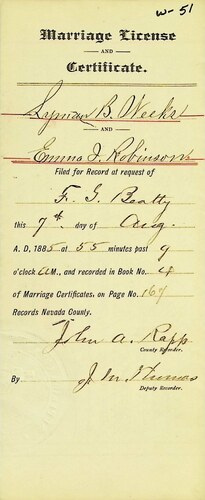 W-51
Marriage License
AND
Certificate.
Lyman B. Weeks
AND
Emma J. Robinson
Filed for Record at request of
F. G. Beatty
this 7th day of Aug.
A. D, 1885 at 55 minutes past 9
o'clock A.M., and recorded in Book No. 4
of Marriage Certificates, on Page No. 167
Records Nevada County.
John A. Rapp
County Recorder.
By J. M. Thomas
Deputy Recorder.